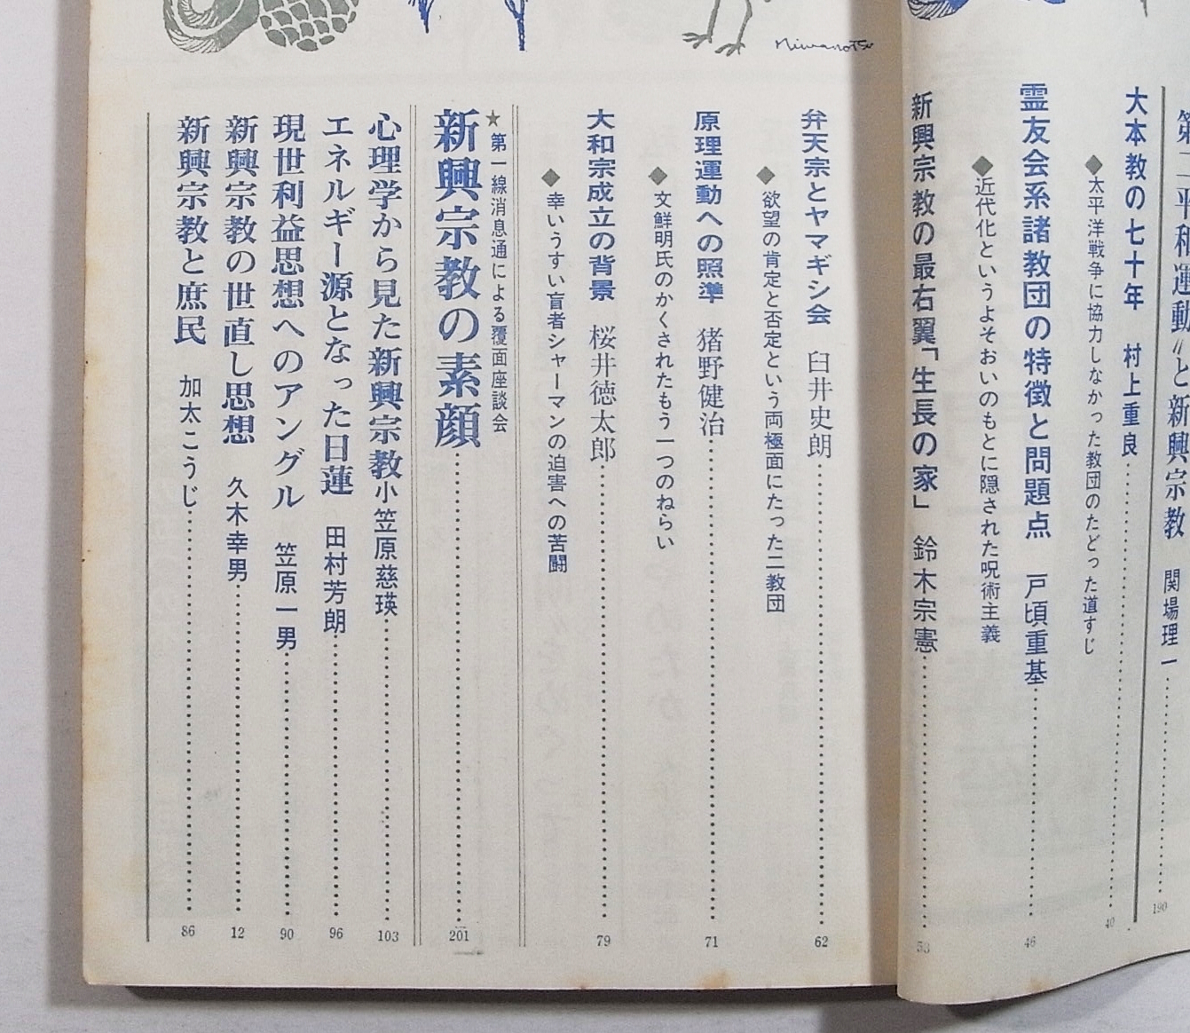 平和運動〃と新興宗教　関場理一 190
大本教の七十年　村上重良 40
◆太平洋戦争に協力しなかった教団のたどった道すじ
霊友会系諸教団の特徴と問題点　戸頃重基 46
◆近代化というよそおいのもとに隠された呪術主義
新興宗教の最右翼「生長の家」　鈴木宗憲 53
弁天宗とヤマギシ会　臼井史朗 62
◆欲望の肯定と否定という両極面にたった二教団
原理運動への照準　猪野健治 71
◆文鮮明氏のかくされたもう一つのねらい
大和宗成立の背景　桜井徳太郎 79
◆幸いうすい盲者シャーマンの迫害への苦闘
★第一線消息通による覆面座談会
新興宗教の素顔 201
心理学から見た新興宗教 小笠原慈瑛 103
エネルギー源となった日蓮　田村芳朗 96
現世利益思想へのアングル　笠原一男 90
新興宗教の世直し思想　久木幸男 12
新興宗教と庶民　加太こうじ 86